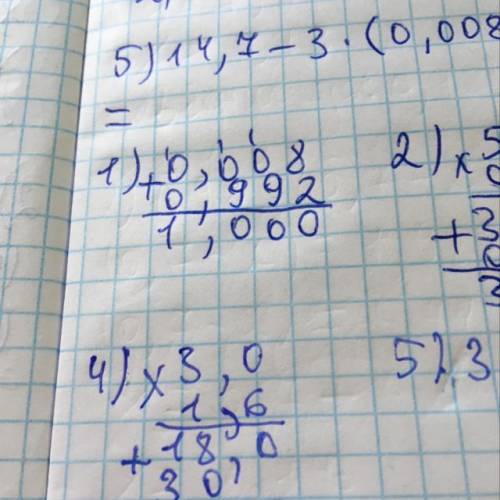 5) 14,7 - 3 · (0,008
=
1) + 0,008
0,992
1,000
2) × 5
+ 3
4) × 3,0
1,6
+ 18,0
30,
5) 3